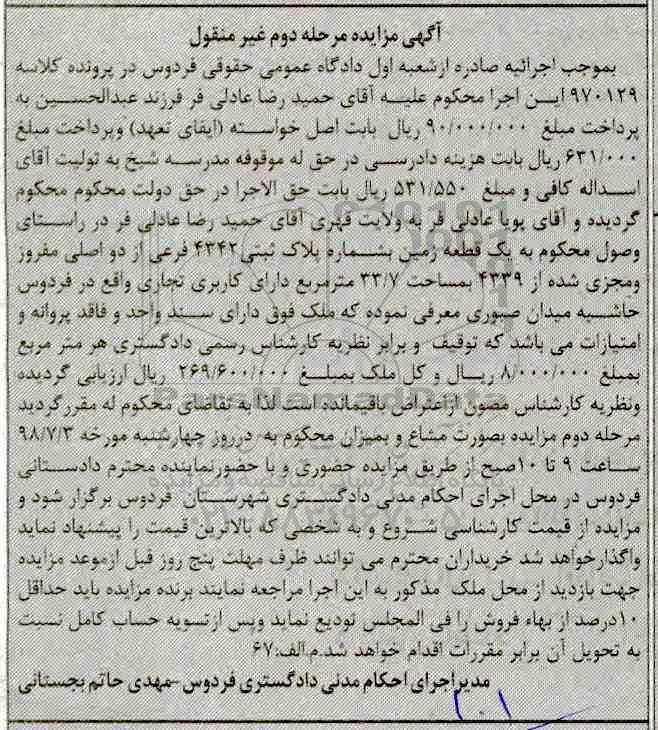 آگهی مزایده مرحله دوم غیر منقول
بموجب اجرائیه صادره ازشعبه اول دادگاه عمومی حقوقی فردوس در پرونده کلاسه
۹۷۰۱۲۹ ایـن اجرا محکوم علیـه آقای حمید رضا عادلی فر فرزند عبدالحسـین به
پرداخت مبلغ ۹۰/۰۰۰/۰۰۰ ریال بابت اصل خواسـته (ایفای تعهد) وپرداخت مبلغ
۶۳۱/۰۰۰ ریال بابت هزینه دادرسـی در حق له موقوفه مدرسـه شیخ به تولیت آقای
اسـداله کافی و مبلغ ۵۳۱/۵۵۰ ریال بابت حق الاجرا در حق دولت محکوم محکوم
گردیده و آقای پویا عادلی فر به ولایت قهری آقای حمید رضا عادلی فر در راسـتای
وصول محکوم به یک قطعه زمین بشـماره پلاک ثبتی۴۳۴۲ فرعی از دو اصلی مفروز
ومجزی شده از ۴۳۳۹ بمساحت ۳۳/۷ مترمربع دارای کاربری تجاری واقع در فردوس
حاشـیه میدان صبوری معرفی نموده که ملک فوق دارای سـند واحد و فاقد پروانه و
امتیازات می باشد که توقیف و برابر نظریه کارشناس رسمی دادگستری هر متر مربع
بمبلغ ۸/۰۰۰/۰۰۰ ریـال و کل ملک بمبلـغ ۲۶۹/۶۰۰/۰۰۰ ریال ارزیابی گردیده
ونظریه کارشناس مصون ازعتراض باقیمانده است لذا به تقاضای محکوم له مقررگردید
مرحله دوم مزایده بصورت مشاع و بمیزان محکوم به درروز چهارشنبه مورخه ۹۸/۷/۳
سـاعت ۹ تا ۱۰صبح از طریق مزایده حضوری و با حضورنماینده محترم دادسـتانی
فردوس در محل اجرای احکام مدنی دادگسـتری شهرسـتان فردوس برگزار شود و
مزایده از قیمت کارشناسی شـروع و به شخصی که بالاترین قیمت را پیشنهاد نماید
واگذارخواهد شد خریداران محترم می توانند ظرف مهلت پنج روز قبل ازموعد مزایده
جهت بازدید از محل ملک مذکور به این اجرا مراجعه نمایند برنده مزایده باید حداقل
۱۰درصد از بهاء فروش را فی المجلس تودیع نماید وپس ازتسویه حساب کامل نسبت
به تحویل آن برابر مقررات اقدام خواهد شد.م.الف:۶۷
مدیراجرای احکام مدنی دادگستری فردوس-مهدی حاتم بجستانی